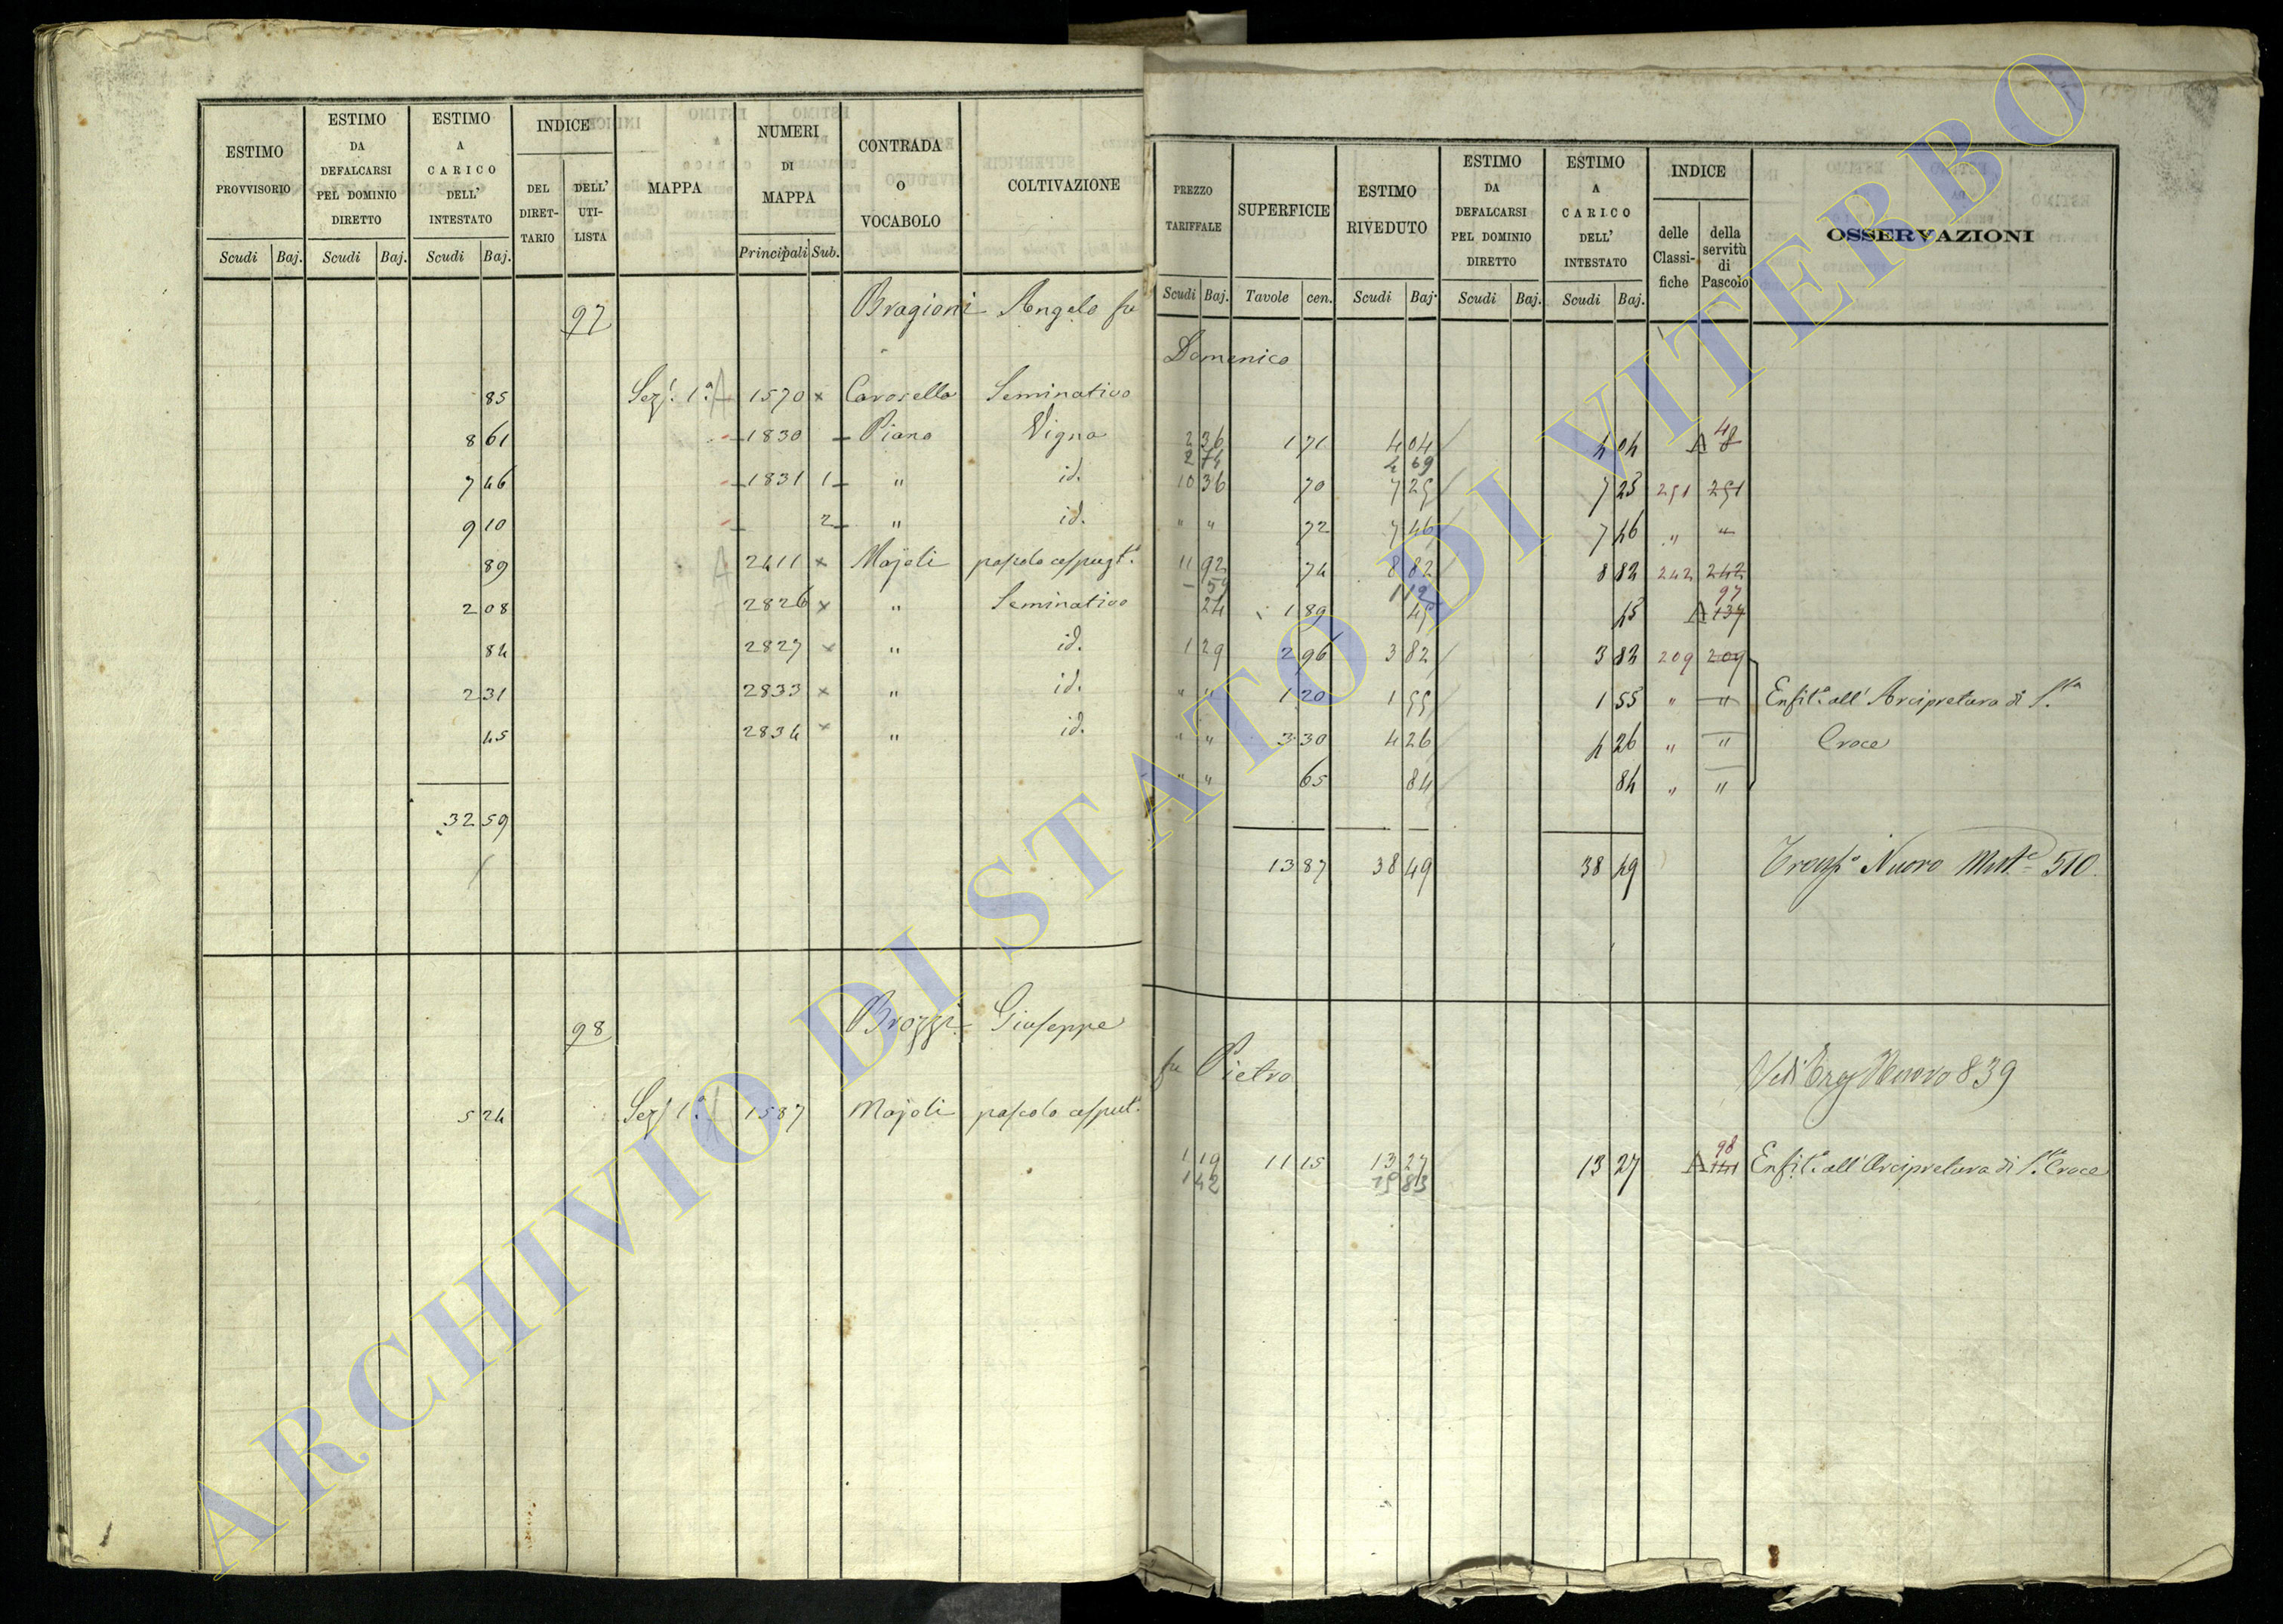 ESTIMO PROVVISORIO | ESTIMO DA DEFALCARSI PEL DOMINIO DIRETTO | ESTIMO A CARICO DELL' INTESTATO | INDICE | MAPPA | NUMERI DI MAPPA | CONTRADA O VOCABOLO | COLTIVAZIONE
DEL DIRET-TARIO | DELL' UTI-LISTA
Scudi | Baj. | Scudi | Baj. | Scudi | Baj. | Principali | Sub.
97 Bragioni Angelo fu
85 Sez. 1.ª 1570 x Carosella Seminativo
8 61 1830 Piano Vigna
7 46 1831 1 " id.
9 10 2 " id.
89 2411 x Majoli pascolo
2 08 2826 x " Seminativo
84 2827 x " id.
2 31 2833 x " id.
45 2834 x " id.
32 59
98 Brozzi Giuseppe
5 24 Sez. 1.ª 1587 Majoli pascolo
PREZZO TARIFFALE | SUPERFICIE | ESTIMO RIVEDUTO | ESTIMO DA DEFALCARSI PEL DOMINIO DIRETTO | ESTIMO A CARICO DELL' INTESTATO | INDICE | OSSERVAZIONI
delle Classi-fiche | della servitù di Pascolo
Scudi | Baj. | Tavole | cen. | Scudi | Baj. | Scudi | Baj. | Scudi | Baj.
Domenico
48
2 36 1 71 4 04 4 04 A
2 74 4 69
10 36 70 7 25 7 25 251 251
" " 72 7 46 7 46 " "
11 92 74 8 82 8 82 242 242
59 1 12 97
24 1 89 45 45 A 137
1 29 2 96 3 82 3 82 209 209
" " 1 20 1 55 1 55 " " Enfit. all' Arcipretura di S.ta
" " 3 30 4 26 4 26 " " Croce
" " 65 84 84 " "
13 87 38 49 38 49 Nuovo 510
fu Pietro Vedi Nuovo 839
98
1 19 11 15 13 27 13 27 A 141 Enfit. all' Arcipretura di S.ta Croce
1 42 15 83
ARCHIVIO DI STATO DI VITERBO